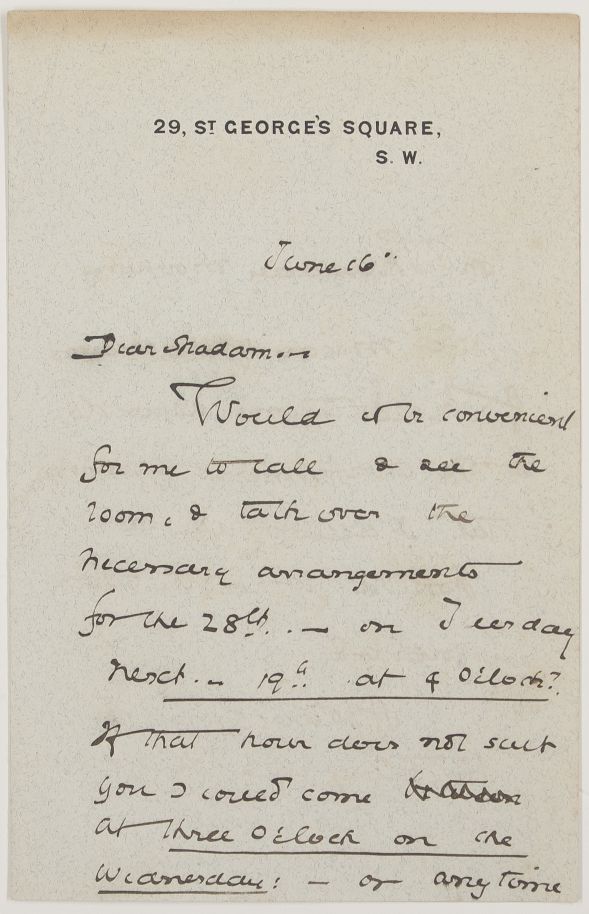 29, ST GEORGE'S SQUARE,
S. W.
June 16th
Dear Madam. –
Would it be convenient
for me to call & see the
room, & talk over the
necessary arrangements
for the 28th. – on Tuesday
next. – 19th at 4 O'Clock?
If that hour does not suit
you I could come
at three O'Clock on the
Wednesday: – or any time